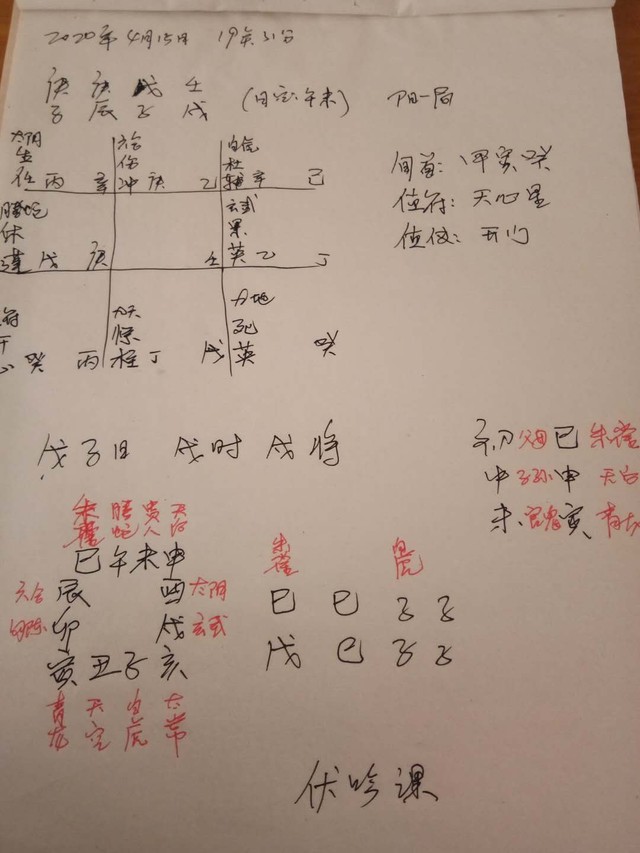 2020年4月15日 19点51分
庚 庚 戊 壬
子 辰 子 戌 (日空:午未) 阳一局
太阴 六合 白虎
生 伤 杜
任 丙 辛 冲 庚 乙 辅 辛 己
腾蛇 玄武
休 景
蓬 戊 庚 壬 英 乙 丁
符 九天 九地
惊 死
心 癸 丙 柱 丁 戊 癸
旬首: 甲寅癸
值符: 天心星
值使: 开门
戊子日 戌时 戌将
初 父母 巳 朱雀
中 子孙 申 天后
末 官鬼 寅 青龙
朱雀 腾蛇 贵人 天后
巳 午 未 申
六合 辰 酉 太阴
勾陈 卯 戌 玄武
寅 丑 子 亥
青龙 天空 白虎 太常
朱雀 白虎
巳 巳 子 子
戊 巳 子 子
伏吟课